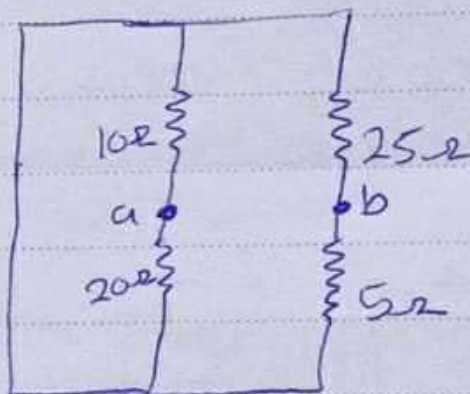 10Ω 25Ω
a b
20Ω 5Ω